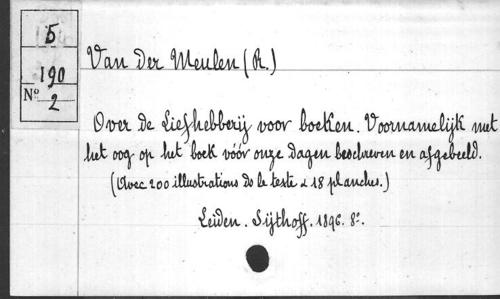 5
190
Nº 2
Van der Meulen (R.)
Over de Liefhebberij voor boeken. Voornamelijk met
het oog op het boek vóór onze dagen beschreven en afgebeeld.
(Avec 200 illustrations ds le texte & 18 planches.)
Leiden. Sijthoff. 1896. 8º.